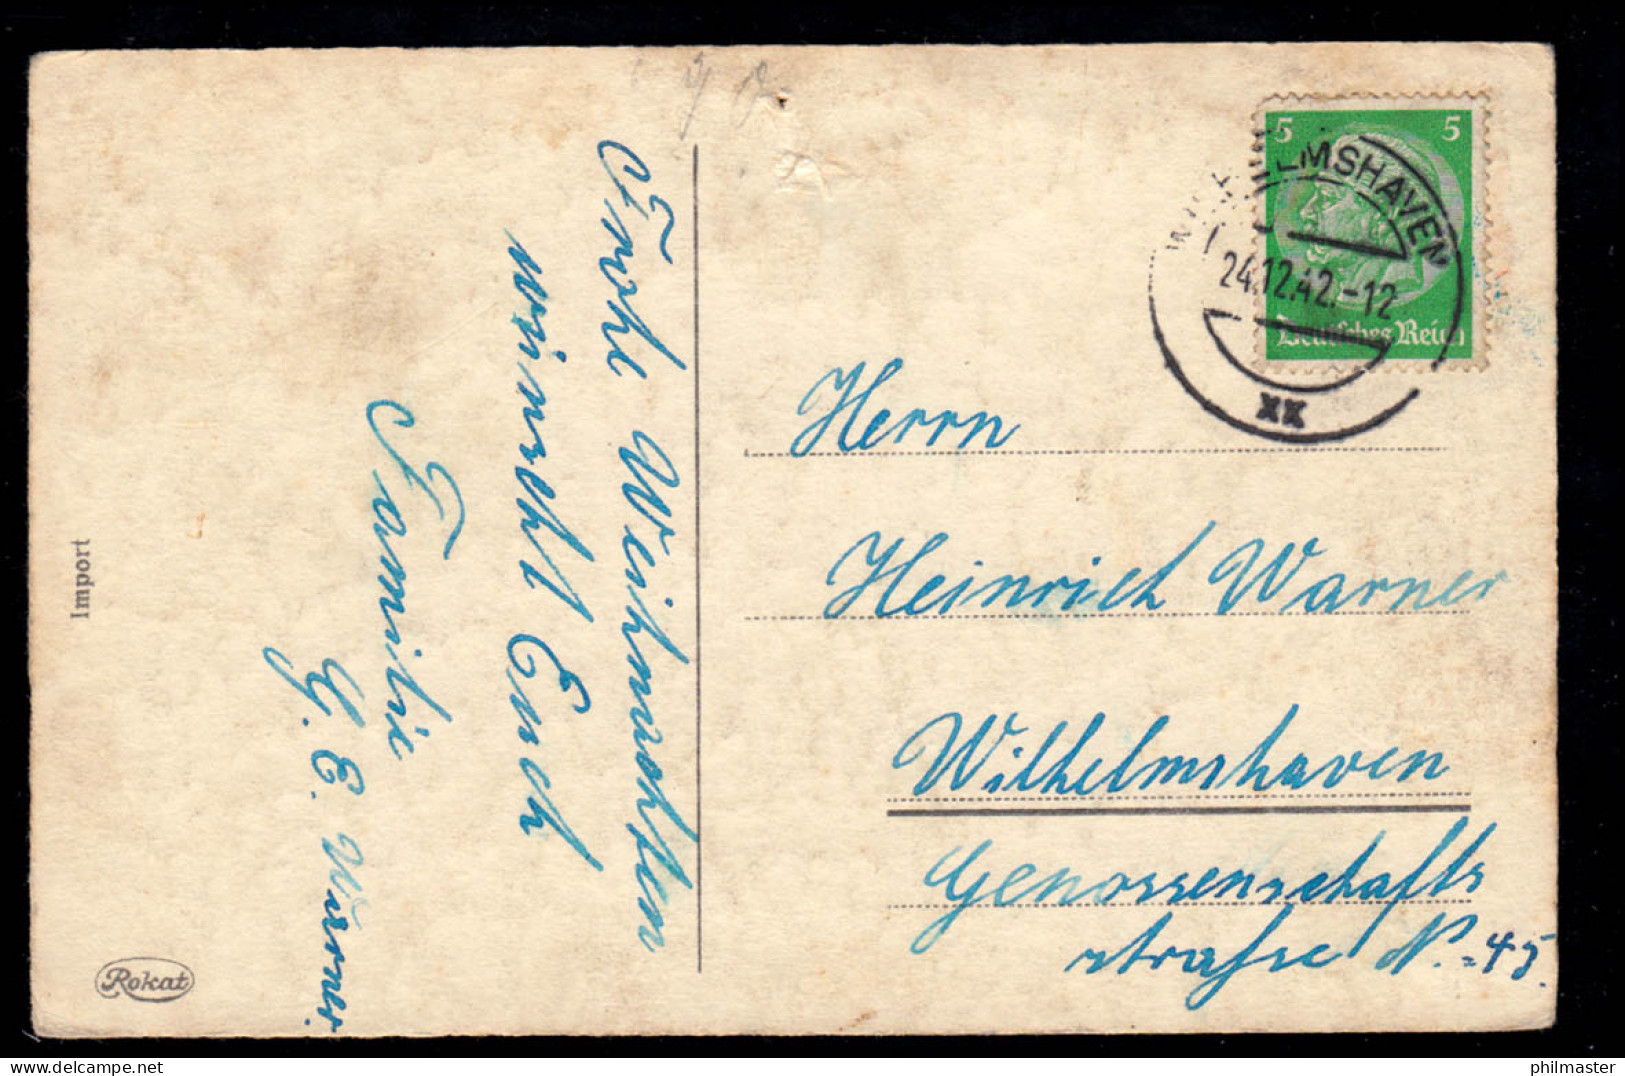 Frohe Weihnachten
wünscht Euch
Familie
G. E. Warner.
Import
Rokat
5 5
Deutsches Reich
WILHELMSHAVEN
24.12.42.-12
xx
Herrn
Heinrich Warner
Wilhelmshaven
Genossenschafts
straße N. = 45.
philmaster